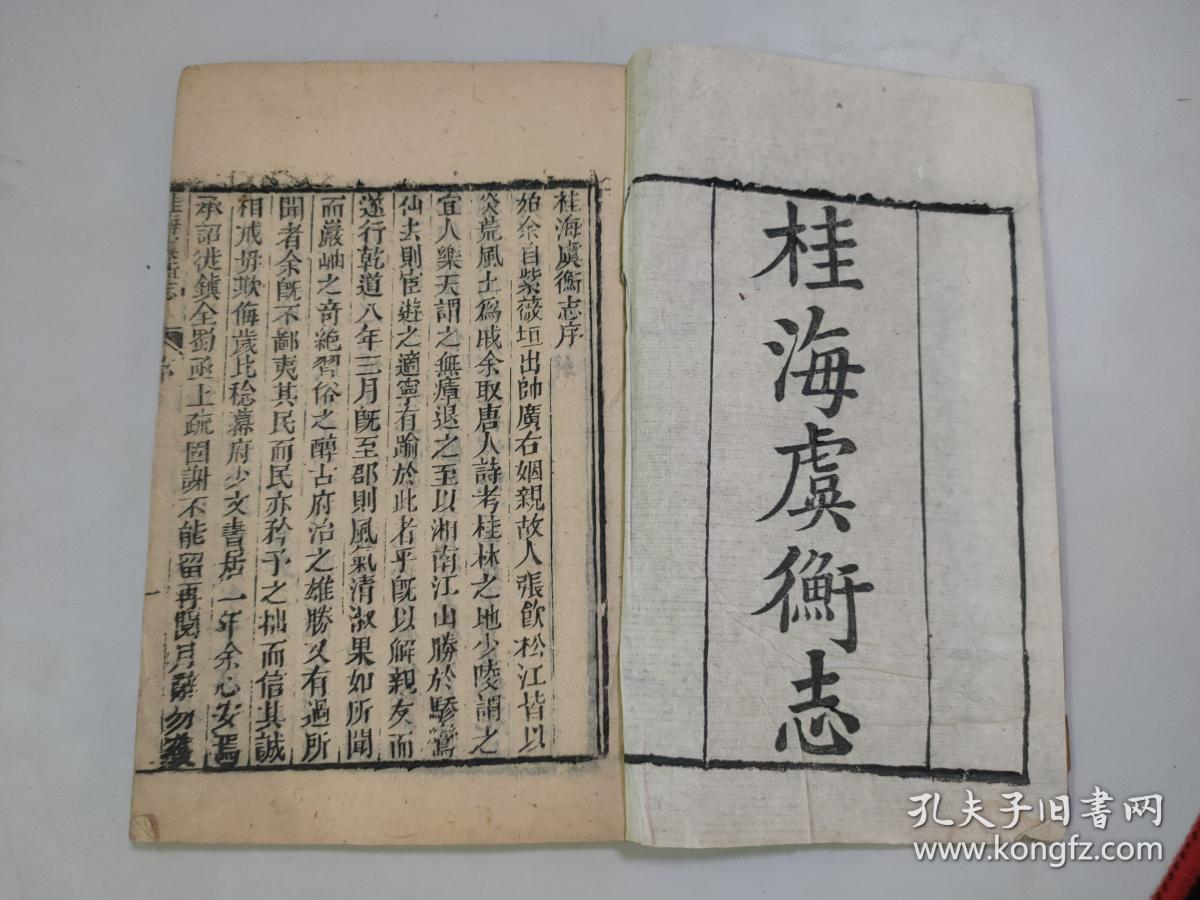 桂海虞衡志
桂海虞衡志序
始余自紫薇垣出帥廣右姻親故人張飲松江皆以
炎荒風土為戚余取唐人詩考桂林之地少陵謂之
宜人樂天謂之無瘴退之至以湘南江山勝於驂鸞
仙去則宦遊之適寧有踰於此者乎既以解親友而
遂行乾道八年三月既至郡則風氣清淑果如所聞
而巖岫之奇絶習俗之醇古府治之雄勝又有過所
聞者余既不鄙夷其民而民亦矜予之拙而信其誠
相戒毋欺侮歲比稔幕府少文書居一年余心安焉
承詔徙鎮全蜀亟上疏固謝不能留再閱月辭勿獲
桂海虞衡志 序 一
孔夫子旧书网
www.kongfz.com